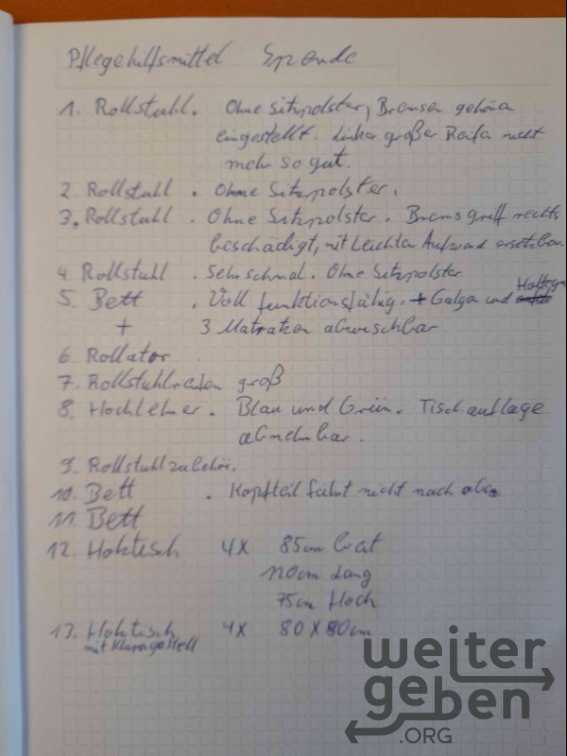 Pflegehilfsmittel Spende
1. Rollstuhl. Ohne Sitzpolster, Bremsen gehören
eingestellt. Linker großer Reifen nicht
mehr so gut.
2. Rollstuhl . Ohne Sitzpolster.
3. Rollstuhl . Ohne Sitzpolster. Bremsgriff rechts
beschädigt, mit leichten Aufwand ersetzbar.
4. Rollstuhl . Sehr schmal. Ohne Sitzpolster
5. Bett . Voll funktionsfähig. + Galgen und
+ 3 Matratzen abwischbar
6. Rollator
7. Rollstuhlreifen groß
8. Hochlehner. Blau und Grün. Tischauflage
abnehmbar.
9. Rollstuhlzubehör.
10. Bett . Kopfteil fährt nicht nach oben
11. Bett
12. Holztisch 4x 85cm breit
120cm Lang
75cm Hoch
13. Holztisch 4x 80x80cm
mit Klappgestell
weiter
geben
.ORG